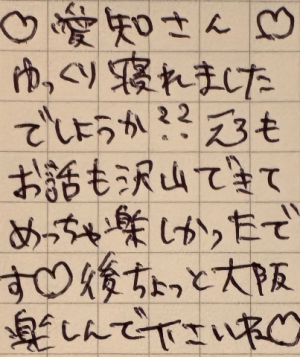 ♡愛知さん♡
ゆっくり寝れました
でしょうか??えろも
お話も沢山できて
めっちゃ楽しかったで
す♡後ちょっと大阪
楽しんで下さいね♡